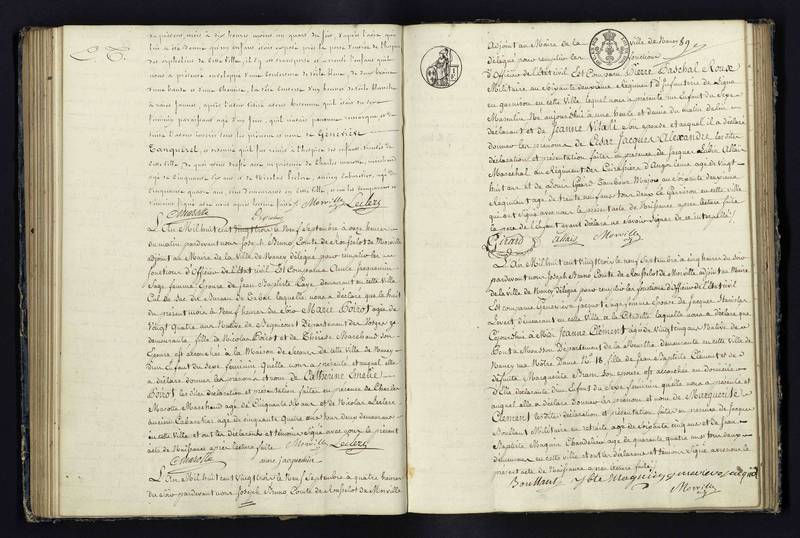 C. T.
du présent mois à dix heures moins un quart du soir, d'après l'avis qui
lui a été donné qu'un enfant était exposé près la porte d'entrée de l'hospice
des orphelins de cette ville, il s'y est transporté et a trouvé l'enfant qu'il
nous a présenté enveloppé d'une
d'une et d'une chemise, la tête couverte d'un bonnet de toile blanche
à raies jaunes, après l'avoir visité avons reconnu qu'il était du sexe
féminin paraissant âgé d'un jour, qu'il n'avait aucune remarque, et de
suite l'avons inscrit sous les prénoms et nom de Geneviève
Tanquirel, et ordonné qu'il fut remis à l'hospice des enfants trouvés de
cette ville. De quoi avons dressé acte en présence de Charles Marotte, marchand
âgé de cinquante six ans et de Nicolas Leclerc, ancien cabaretier, âgé de
cinquante quatre ans, tous deux demeurant en cette ville, et ont les comparant et
témoins signé avec nous après lecture faite.
CMarotte Morville Leclerc
L'An Mil huit cent Vingt trois le Neuf Septembre à onze heures
du matin pardevant nous Joseph Bruno Comte de Morville
adjoint au Maire de la Ville de Nancy délégué pour remplir les
fonctions d'Officier de l'Etat civil Est Comparue Anne Jacquemin
Sage femme Epouse de Jean Baptiste Laye demeurant en cette Ville
Cul de Sac du laquelle nous a déclaré que le huit
du présent mois à Neuf heures du Soir Marie Poirot agée de
Vingt Quatre ans Native de Département des Vosges y
demeurante, fille de Nicolas Poirot et de Thérèse Marchand son
Epouse est accouchée à la Maison de Secours de cette Ville de Nancy
D'un Enfant du sexe féminin Qu'elle nous a présenté et auquel elle
a déclaré donner les prénoms et nom de Catherine Emélie
Poirot les dites déclaration et présentation faites en présence de Charles
Marotte Marchand agé de Cinquante six ans et de Nicolas Leclerc
ancien Cabaretier agé de Cinquante Quatre ans tous deux demeurans
en cette Ville et ont les déclarant et témoins Signé avec nous le présent
acte de Naissance après lecture faite. Morville Leclerc
CMarotte anne jacquemin
L'An Mil huit cent Vingt trois le Neuf Septembre à quatre heures
du Soir pardevant nous Joseph Bruno Comte de Morville
adjoint au Maire de la Ville de Nancy 89
délégué pour remplir les fonctions
d'Officier de l'Etat civil Est Comparu Pierre Paschal Roux
Militaire au Soixante deuxième Régiment d'Infanterie de Ligne
en garnison en cette Ville, lequel nous a présenté un Enfant du Sexe
Masculin Né aujourd'hui à une heure et demie du matin de lui
déclarant et de Jeanne Vitali son épouse et auquel il a déclaré
donner les prénoms de César Jacques Alexandre les dites
déclaration et présentation faites en présence de Jacques Allais
Maréchal au Régiment des Cuirassiers d'Angoulême agé de Vingt
huit ans et de Girard Tambour Major au Soixante deuxième
Régiment agé de trente neuf ans tous deux de Garnison en cette Ville
qui ont signé avec nous le présent acte de Naissance après lecture faite
le père de l'Enfant ayant déclaré ne Savoir Signer de ce interpellé.
Girard allais Morville
L'An Mil huit cent Vingt trois le neuf Septembre à cinq heures du soir
pardevant nous Joseph Bruno Comte de Morville adjoint au Maire
de la Ville de Nancy délégué pour remplir les fonctions d'Officier de l'Etat civil
Est comparue Geneviève Jacquot Sage femme Epouse de Jacques Stanislas
Levert demeurant en cette Ville à la Citadelle laquelle nous a déclaré que
Cejourd'hui à Midi Jeanne Clément agée de Vingt cinq ans Native de
Pont à Mousson Département de la Meurthe demeurante en cette Ville de
Nancy rue Nôtre Dame No. 18, fille de Jean Baptiste Clément et de
défunte Marguerite son épouse est accouchée au domicile
d'Elle déclarante d'un Enfant du Sexe féminin qu'elle nous a présenté et
auquel elle a déclaré donner les prénom et nom de Marguerite
Clément les dites déclaration et présentation faites en présence de Jacques
Boulland Militaire en retraite agé de Soixante cinq ans et de Jean
Baptiste Maquin Chandelier agé de quarante quatre ans tous deux
demeurans en cette ville et ont les déclarante et témoins Signé avec nous le
présent acte de Naissance après lecture faite.
Boulland jbte Maquin genevieve jacquot
Morville